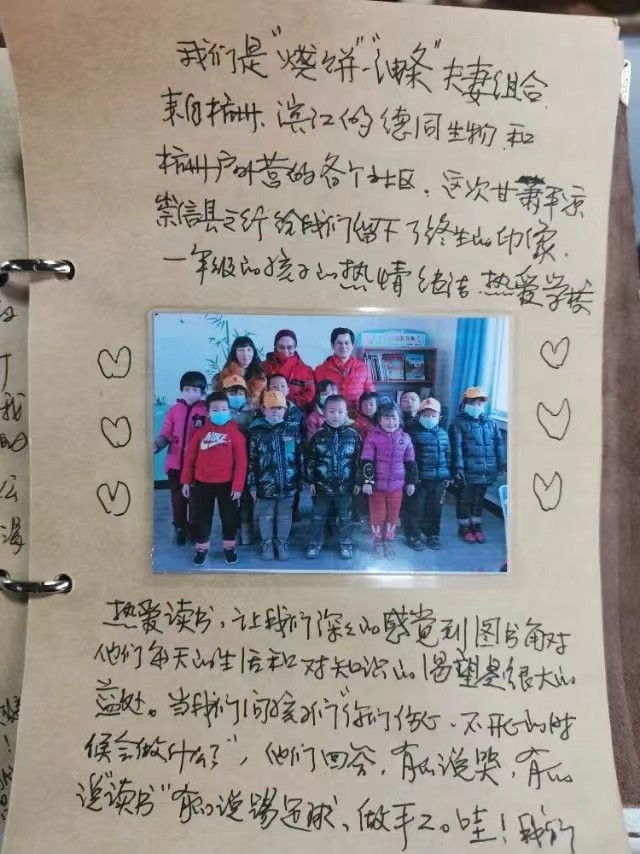 我们是“烧饼”“油条”夫妻组合
来自杭州、滨江的德同生物和
杭州户外营的各个社区，这次甘肃平凉
崇信县之行给我们留下了终生的印象，
一年级的孩子的热情纯洁、热爱学校
热爱读书，让我们深深的感觉到图书角对
他们每天的生活和对知识的渴望是很大的
益处。当我们问孩子们“你们伤心、不开心的时
候会做什么？”，他们回答，有的说哭，有的
说“读书”有的说踢足球、做手工。哇！我们
NIKE
我